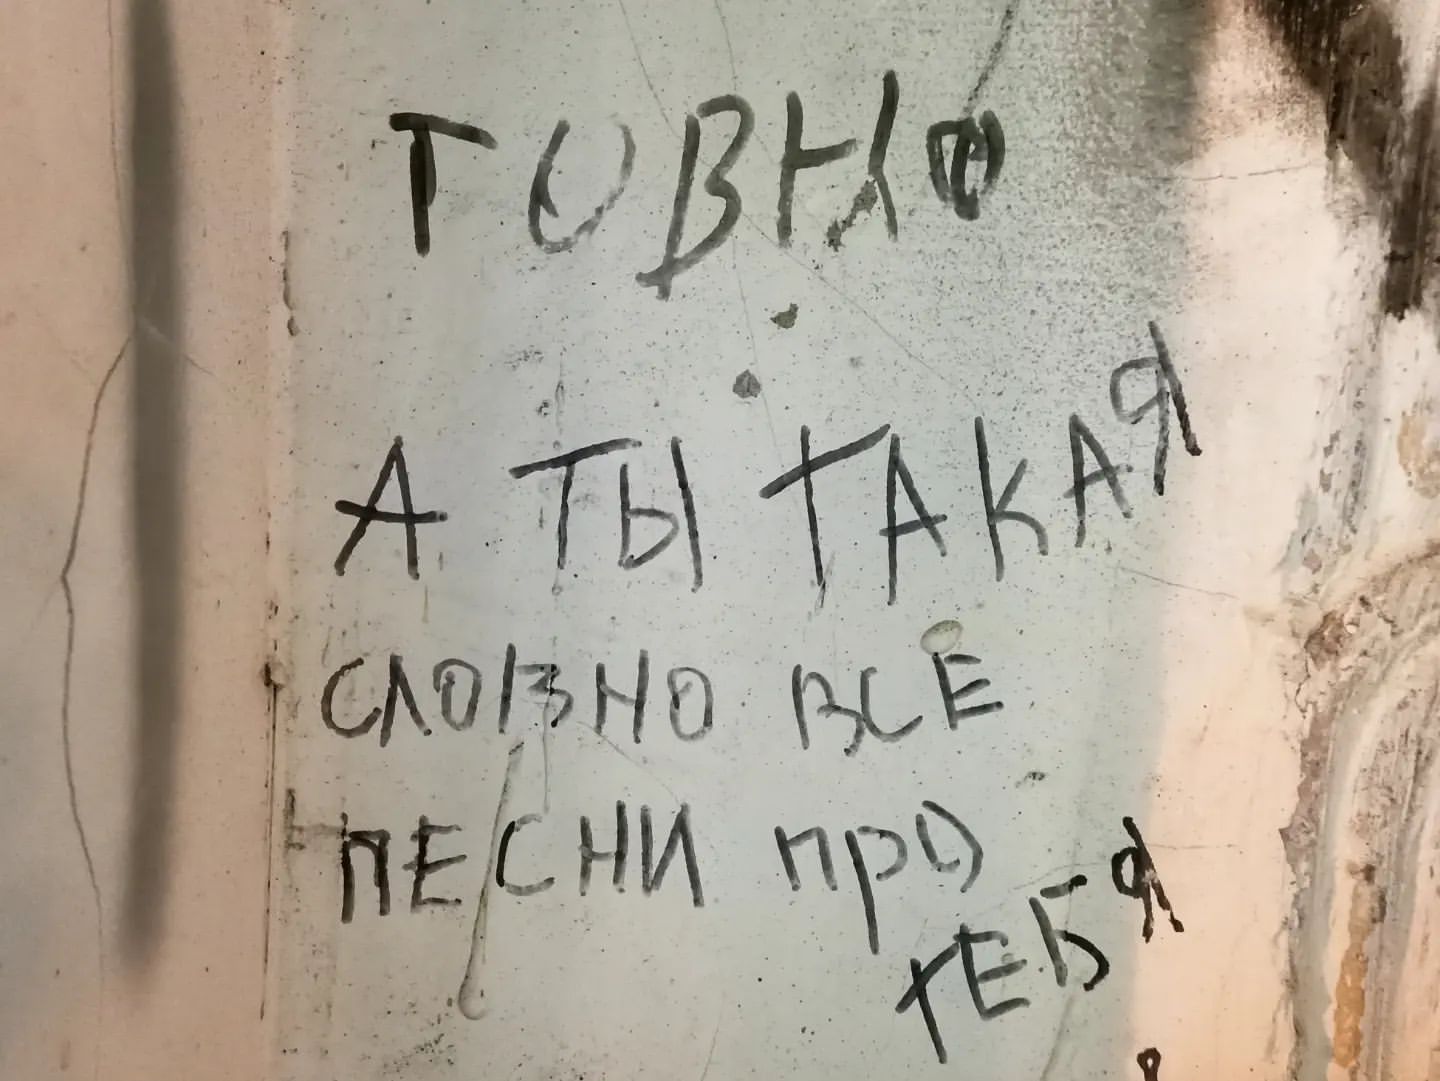 ГОВНО
А ТЫ ТАКАЯ
СЛОВНО ВСЕ
ПЕСНИ ПРО
ТЕБЯ